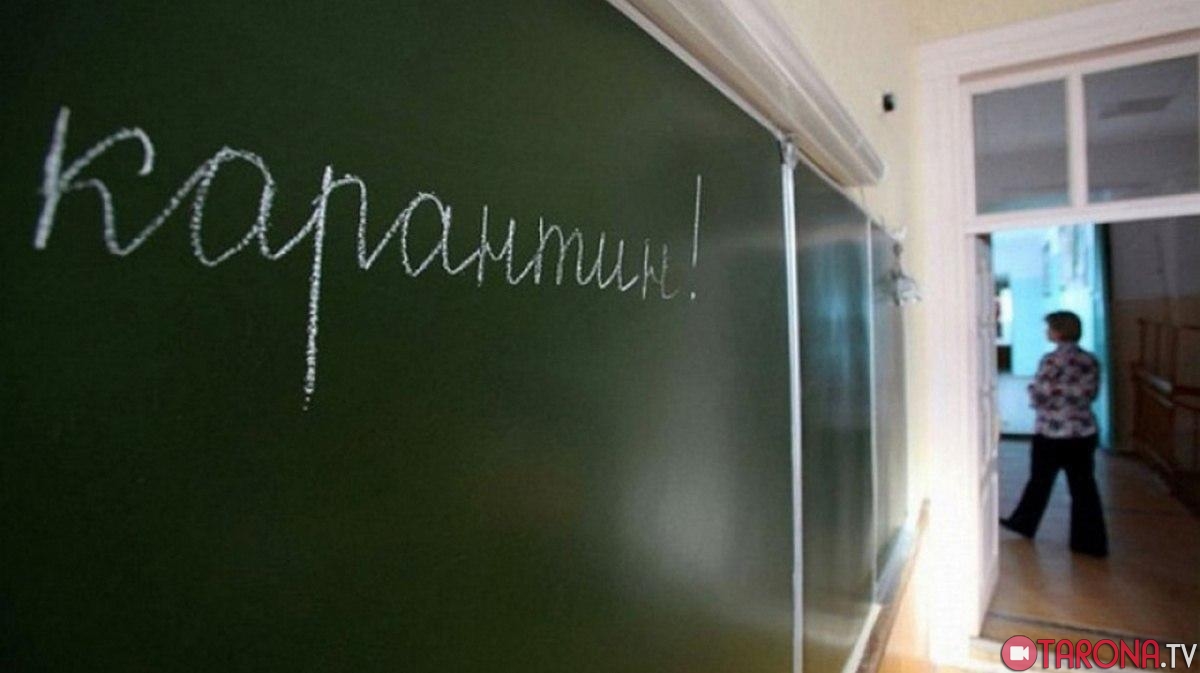 карантин!
TARONA.TV